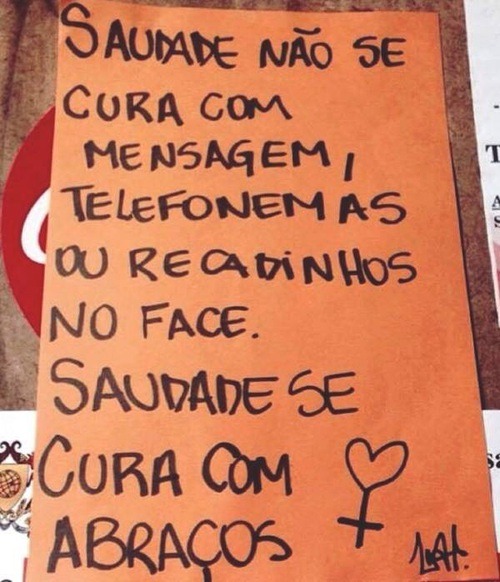 SAUDADE NÃO SE
CURA COM
MENSAGEM,
TELEFONEMAS
OU RECADINHOS
NO FACE.
SAUDADE SE
CURA COM
ABRAÇOS